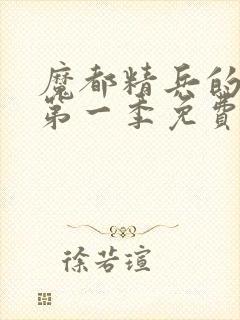 魔都精兵的
第一季免費
徐若瑄